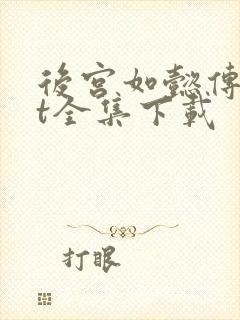 後宮如懿傳
t全集下載
打眼